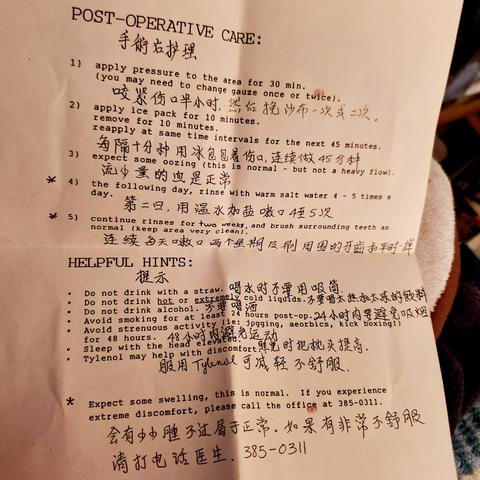 POST-OPERATIVE CARE:
手術右护理
1) apply pressure to the area for 30 min.
(you may need to change gauze once or twice).
咬紧伤口半小时,然后挽沙布一次或二次。
2) apply ice pack for 10 minutes.
remove for 10 minutes.
reapply at same time intervals for the next 45 minutes.
每隔十分种用冰包包着伤口,连续做45分种
3) expect some oozing (this is normal - but not a heavy flow).
流少量的血是正常
* 4) the following day, rinse with warm salt water 4 - 5 times a
day.
第二日,用温水加盐嗽口4至5次
* 5) continue rinses for two weeks, and brush surrounding teeth as
normal (keep area very clean).
连续每天嗽口两个星期及刷用围的牙齿和平时一样
HELPFUL HINTS:
提示
• Do not drink with a straw. 喝水时不要用吸筒
• Do not drink hot or extremely cold liquids. 不要喝太热和太冻的飲料
• Do not drink alcohol. 不要喝酒
• Avoid smoking for at least 24 hours post-op. 24小时内要避免吸烟
• Avoid strenuous activity (ie: jogging, aeorbics, kick boxing!)
for 48 hours. 48小时内避免运动
• Sleep with the head elevated. 时把枕头提高.
• Tylenol may help with discomfort.
服用Tylenol可减轻不舒服.
* Expect some swelling, this is normal. If you experience
extreme discomfort, please call the office at 385-0311.
会有少少腫不过属于正常. 如果有非常不舒服
请打电话医生. 385-0311